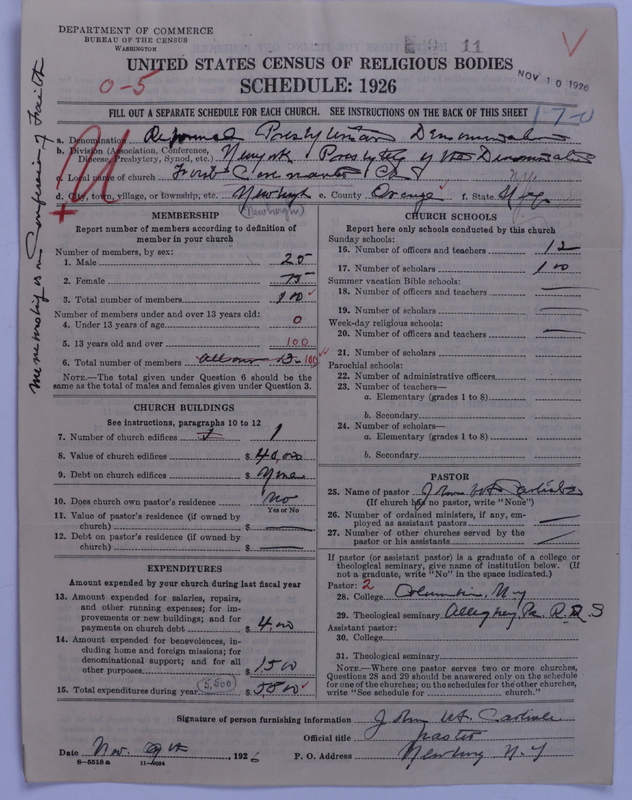 DEPARTMENT OF COMMERCE
BUREAU OF THE CENSUS
WASHINGTON
11
UNITED STATES CENSUS OF RELIGIOUS BODIES
NOV 10 1926
SCHEDULE: 1926
0-5
FILL OUT A SEPARATE SCHEDULE FOR EACH CHURCH. SEE INSTRUCTIONS ON THE BACK OF THIS SHEET
a. Denomination Reformed Presbyterian Denomination
b. Division (Association, Conference, Diocese, Presbytery, Synod, etc.) New york Presbytery of the Denomination
c. Local name of church First Covenanter Ch
d. City, town, village, or township, etc. Newburgh e. County Orange f. State N.Y.
(Newburgh)
membership is on Confession of Faith
MEMBERSHIP
Report number of members according to definition of member in your church
Number of members, by sex:
1. Male 25
2. Female 75
3. Total number of members 100
Number of members under and over 13 years old:
4. Under 13 years of age 0
5. 13 years old and over 100
6. Total number of members all over 13 100
NOTE.—The total given under Question 6 should be the same as the total of males and females given under Question 3.
CHURCH BUILDINGS
See instructions, paragraphs 10 to 12
7. Number of church edifices 1
8. Value of church edifices $ 40,000
9. Debt on church edifices $ None
10. Does church own pastor's residence No
Yes or No
11. Value of pastor's residence (if owned by church) $
12. Debt on pastor's residence (if owned by church) $
EXPENDITURES
Amount expended by your church during last fiscal year
13. Amount expended for salaries, repairs, and other running expenses; for improvements or new buildings; and for payments on church debt $ 4,000
14. Amount expended for benevolences, including home and foreign missions; for denominational support; and for all other purposes $ 1500
15. Total expenditures during year (5,500) $ 5500
CHURCH SCHOOLS
Report here only schools conducted by this church
Sunday schools:
16. Number of officers and teachers 12
17. Number of scholars 100
Summer vacation Bible schools:
18. Number of officers and teachers
19. Number of scholars
Week-day religious schools:
20. Number of officers and teachers
21. Number of scholars
Parochial schools:
22. Number of administrative officers
23. Number of teachers—
a. Elementary (grades 1 to 8)
b. Secondary
24. Number of scholars—
a. Elementary (grades 1 to 8)
b. Secondary
PASTOR
25. Name of pastor John W. F. Carlisle
(If church has no pastor, write "None")
26. Number of ordained ministers, if any, employed as assistant pastors
27. Number of other churches served by the pastor or his assistants
If pastor (or assistant pastor) is a graduate of a college or theological seminary, give name of institution below. (If not a graduate, write "No" in the space indicated.)
Pastor: 2
28. College Columbia, N.Y
29. Theological seminary Allegheny Pa. R.P.S
Assistant pastor:
30. College
31. Theological seminary
NOTE.—Where one pastor serves two or more churches, Questions 28 and 29 should be answered only on the schedule for one of the churches; on the schedules for the other churches, write "See schedule for church."
Signature of person furnishing information John W. F. Carlisle
Official title pastor
Date Nov. 9th, 1926 P. O. Address Newburg N.Y
8—5518 a 11—9024